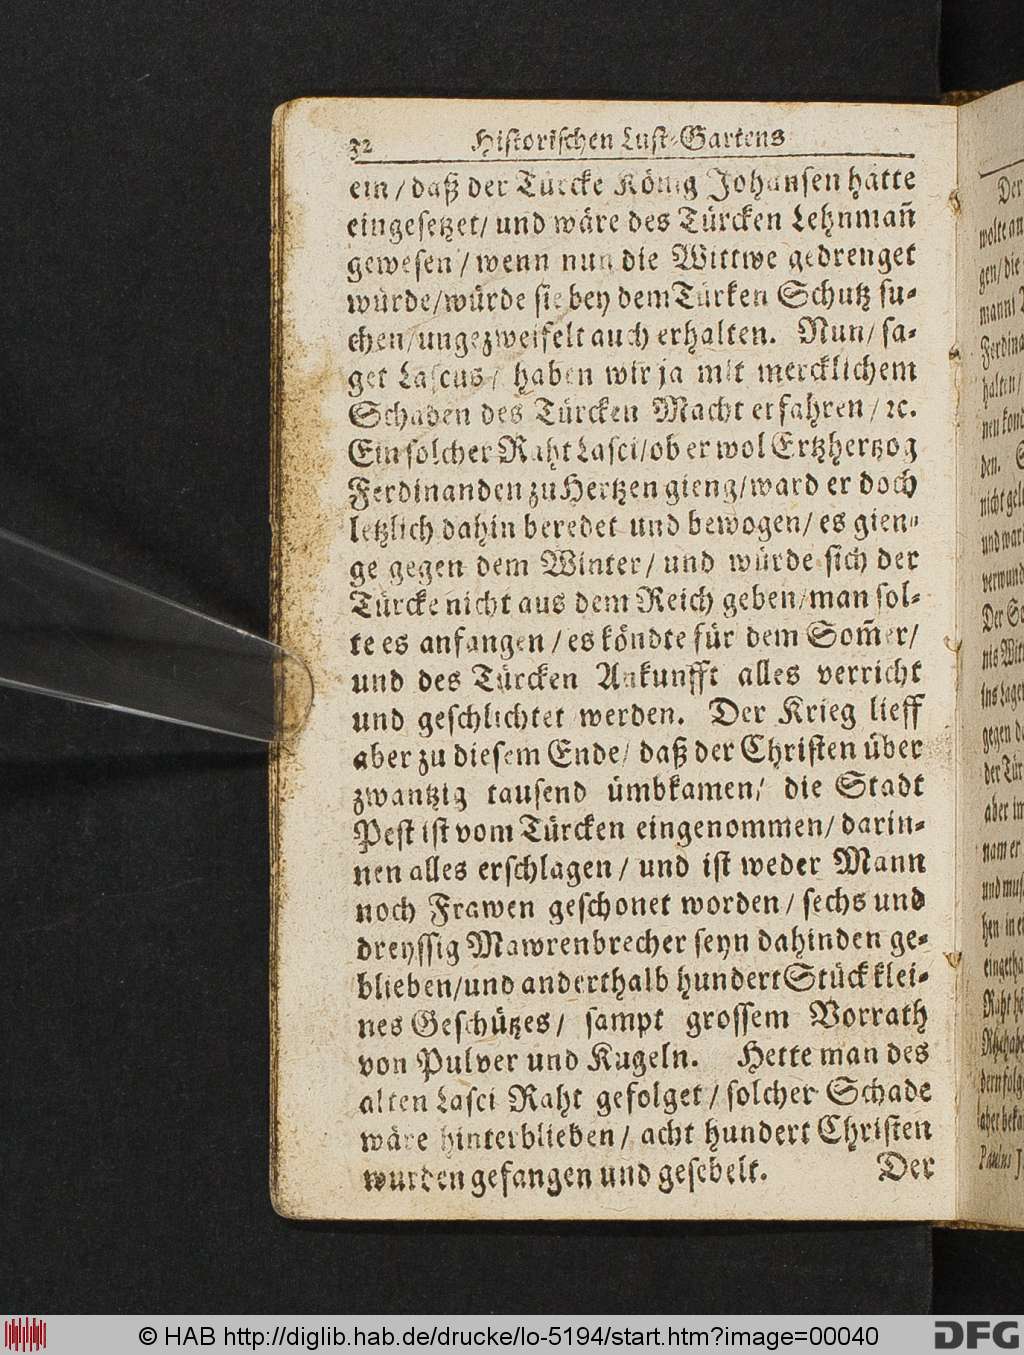 32 Historischen Lust-Gartens
ein / daß der Türcke König Johansen hätte
eingesetzet / und wäre des Türcken Lehnmañ
gewesen / wenn nun die Wittwe gedrenget
würde / würde sie bey dem Türken Schutz su-
chen / ungezweifelt auch erhalten. Nun / sa-
get Lascus / haben wir ja mit mercklichem
Schaden des Türcken Macht erfahren / ꝛc.
Ein solcher Raht Lasci / ob er wol Ertzhertzog
Ferdinanden zu Hertzen gieng / ward er doch
letzlich dahin beredet und bewogen / es gien-
ge gegen dem Winter / und würde sich der
Türcke nicht aus dem Reich geben / man sol-
te es anfangen / es köndte für dem Som̃er /
und des Türcken Ankunfft alles verricht
und geschlichtet werden. Der Krieg lieff
aber zu diesem Ende / daß der Christen über
zwantzig tausend ümbkamen / die Stadt
Pest ist vom Türcken eingenommen / darin-
nen alles erschlagen / und ist weder Mann
noch Frawen geschonet worden / sechs und
dreyssig Mawrenbrecher seyn dahinden ge-
blieben / und anderthalb hundert Stück klei-
nes Geschützes / sampt grossem Vorrath
von Pulver und Kugeln. Hette man des
alten Lasci Raht gefolget / solcher Schade
wäre hinterblieben / acht hundert Christen
wurden gefangen und gesebelt. Der
Der
wolte
gen / die
Ferdina
halten /
den.
nicht
und
Der
ins Lage
gegen
der Tür
aber
nam er
und
hen in
Raht
Paulus
© HAB http://diglib.hab.de/drucke/lo-5194/start.htm?image=00040
DFG